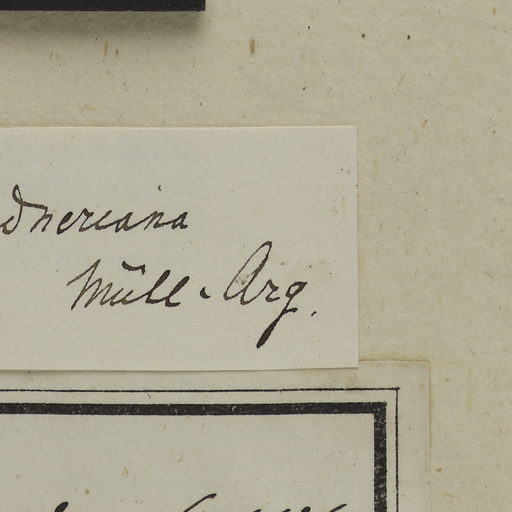 dneriana
Müll-Arg.